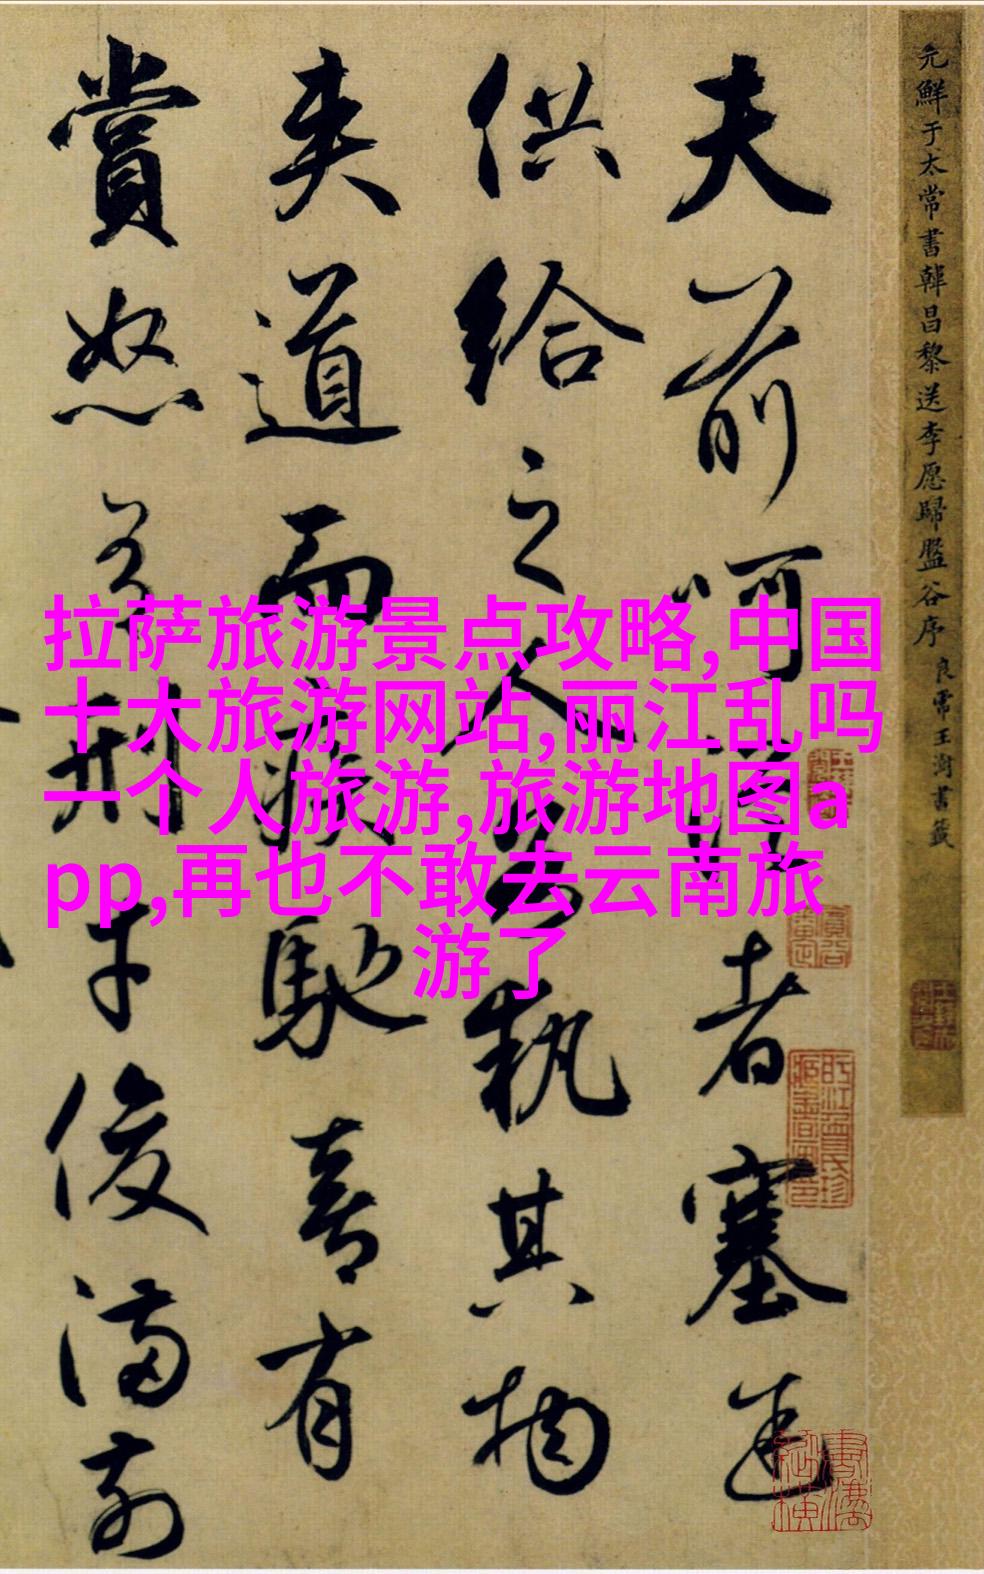 元鮮于太常書韓昌黎送李愿歸盤谷序 良常王澍書籤
夫前呵從者塞途
供給之人各執其物
夾道而疾馳喜有
賞怒有刑才俊滿前
拉萨旅游景点攻略,中国
十大旅游网站,丽江乱吗
一个人旅游,旅游地图a
pp,再也不敢去云南旅
游了